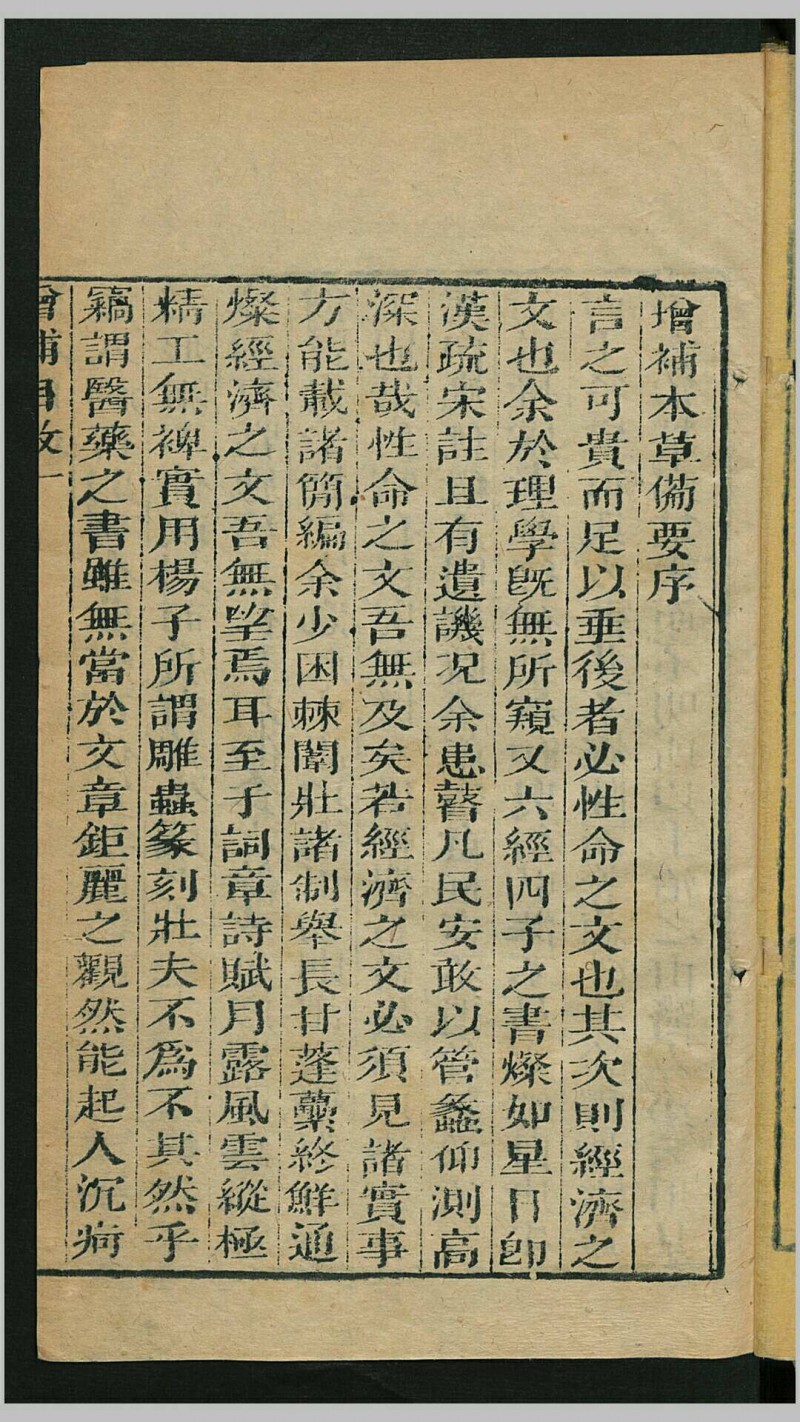 增補本草備要序
言之可貴而足以垂後者必性命之文也其次則經濟之
文也余於理學旣無所窺又六經四子之書燦如星日卽
漢疏宋註且有遺譏况余患瞽凡民安敢以管蠡仰測高
深也哉性命之文吾無及矣若經濟之文必須見諸實事
方能載諸簡編余少困棘闈壯諸制舉長甘蓬藁終鮮通
燦經濟之文吾無望焉耳至于詞章詩賦月露風雲縱極
精工無裨實用楊子所謂雕蟲篆刻壯夫不爲不其然乎
竊謂醫藥之書雖無當於文章鉅麗之觀然能起人沉疴
增補自敘一